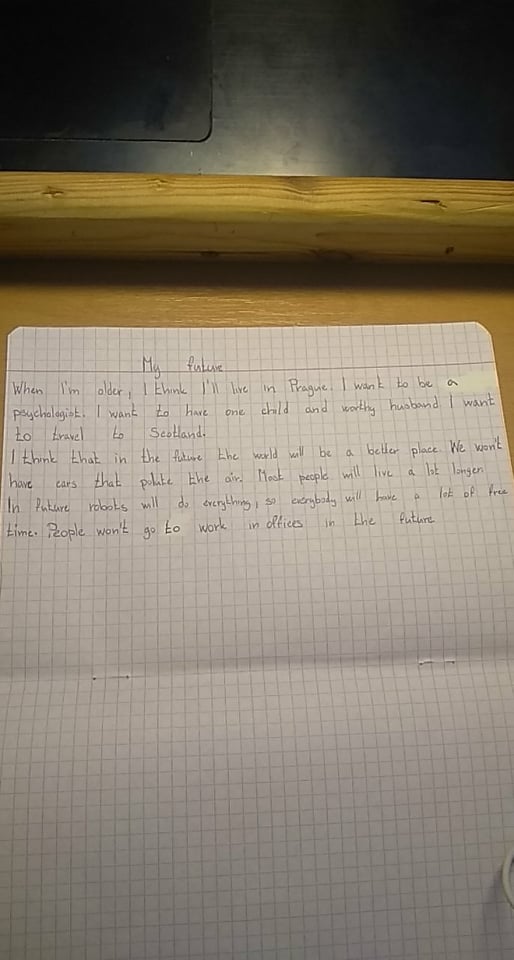 My future
When I'm older, I think I'll live in Prague. I want to be a
psychologist. I want to have one child and worthy husband. I want
to travel to Scotland.
I think that in the future the world will be a better place. We won't
have cars that polute the air. Most people will live a lot longer.
In future robots will do everything, so everybody will have a lot of free
time. People won't go to work in offices in the future